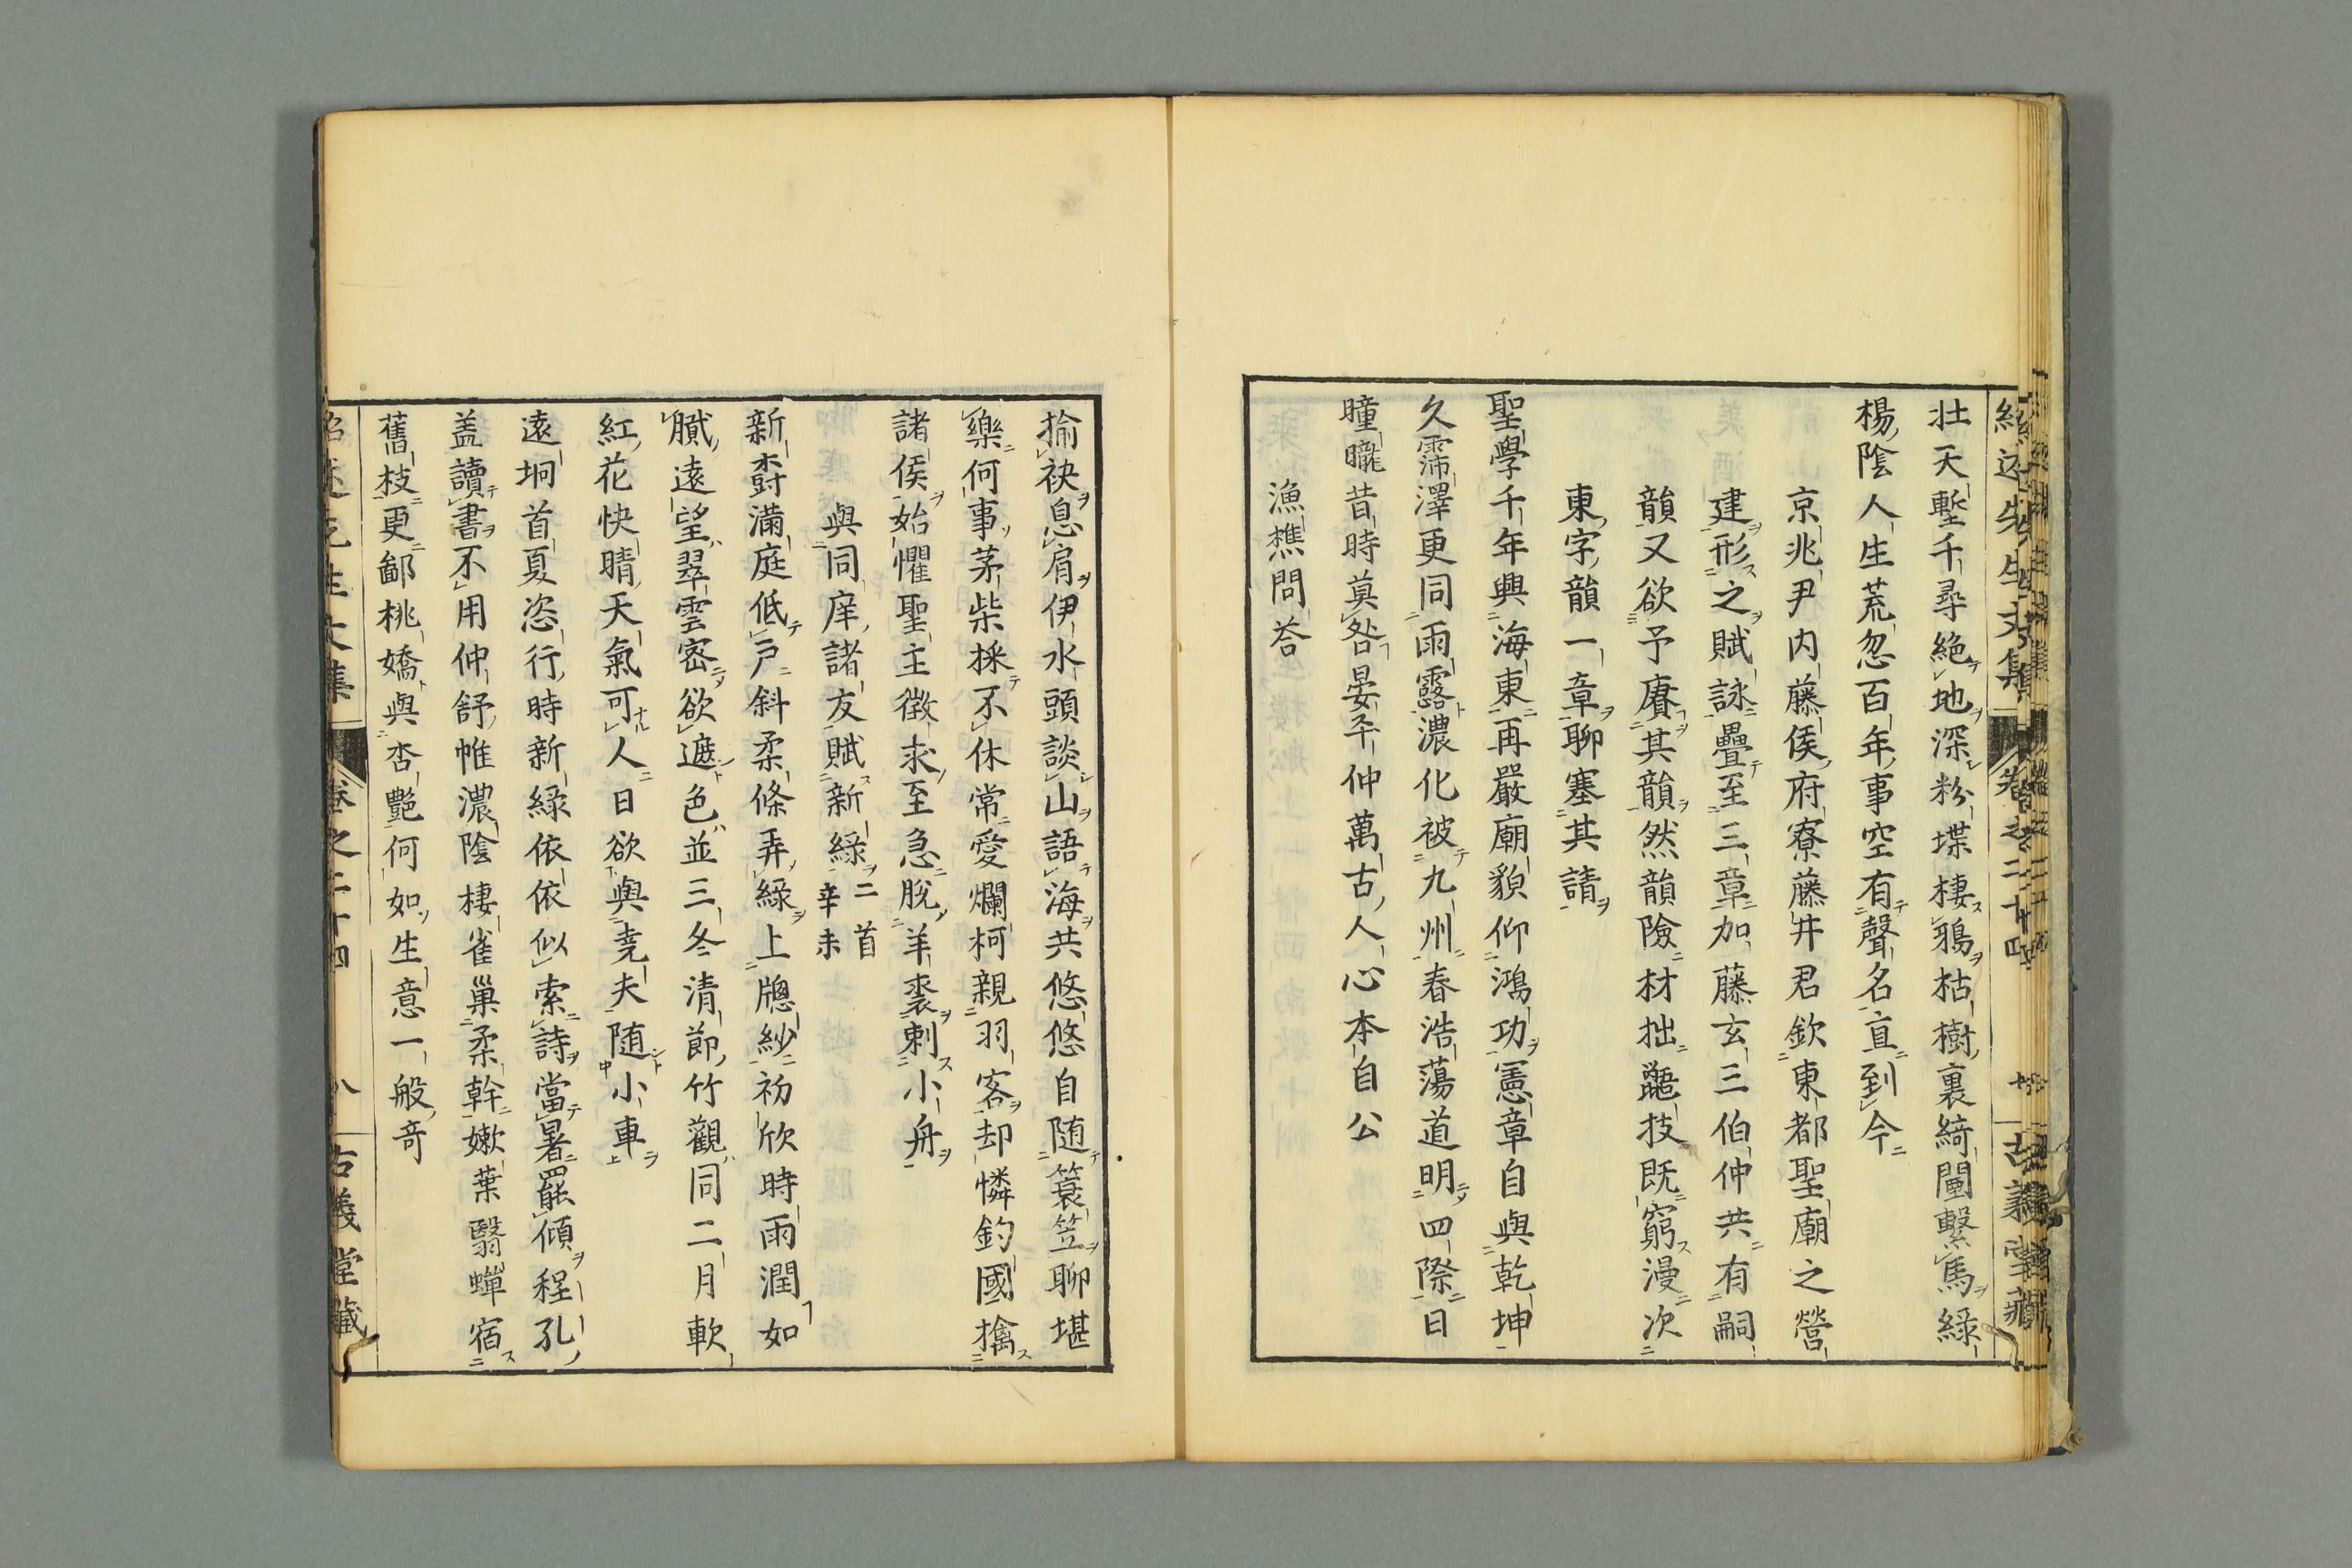 壮天塹千尋絶地深粉堞棲鴉枯樹裏綺闉繫馬綠
楊陰人生荒忽百年事空有聲名直到今
京兆尹内藤侯府寮藤井君欽東都聖廟之營
建形之賦詠疊至三章加藤玄三伯仲共有嗣
韻又欲予賡其韻然韻險材拙鼯技既窮漫次
東字韻一章聊塞其請
聖學千年興海東再嚴廟貌仰鴻功憲章自與乾坤
久霈澤更同雨露濃化被九州春浩蕩道明四際日
曈曨昔時莫咎晏平仲萬古人心本自公
漁樵問荅
揄袂息肩伊水頭談山語海共悠悠自随簑笠聊堪
樂何事茅柴採不休常愛爛柯親羽客却憐釣國擒
諸侯始懼聖主徵求至急脫羊裘刺小舟
與同庠諸友賦新綠二首辛未
新樹滿庭低戸斜柔條弄綠上牕紗初欣時雨潤如
膩遠望翠雲密欲遮色並三冬清節竹觀同二月軟
紅花快晴天氣可人日欲與堯夫随小車
遠坰首夏恣行時新綠依依似索詩當暑罷傾程孔
盖讀書不用仲舒帷濃陰棲雀巢柔幹嫩葉翳蟬宿
舊枝更鄙桃嬌與杏艷何如生意一般奇
紹述先生文集 卷之二十四 八 古義堂藏